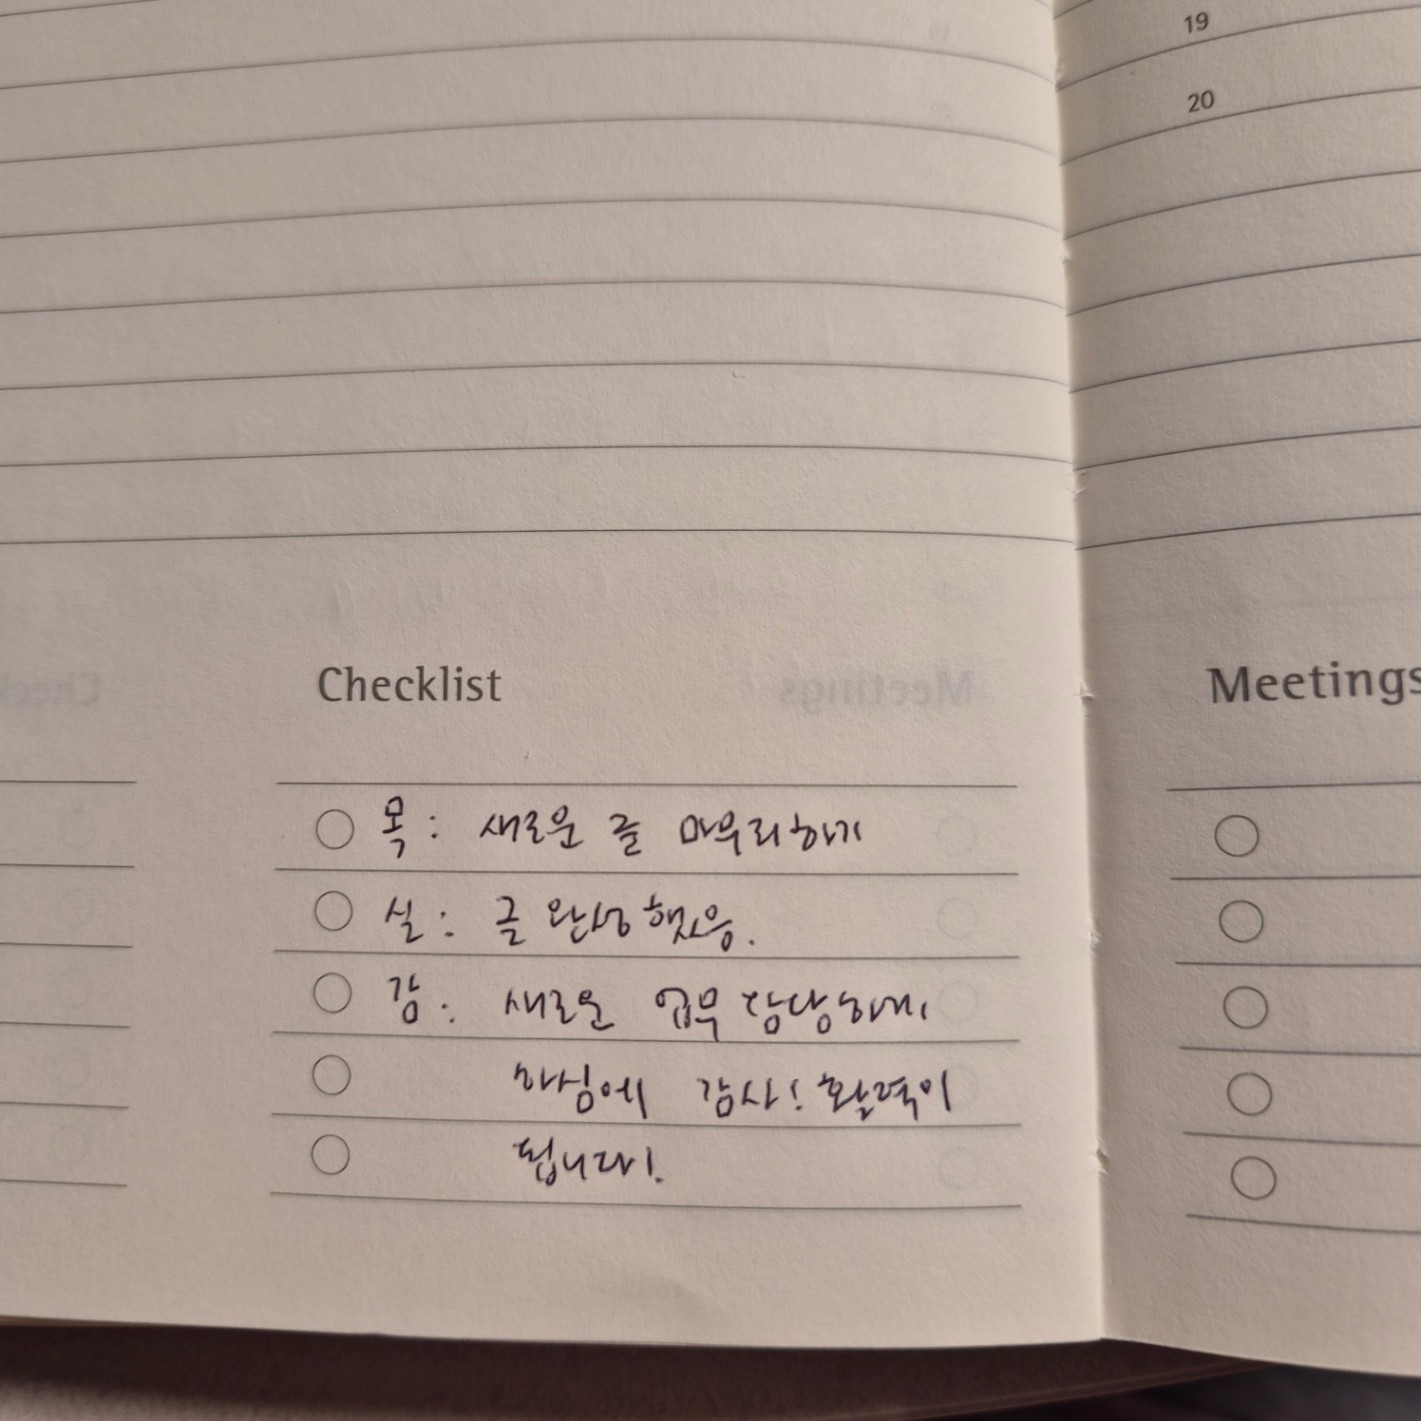 19
20
Checklist
Meetings
목: 새로운 글 마무리하기
실: 글 완성했음.
감: 새로운 업무 감당하게
하심에 감사! 활력이
됩니다!